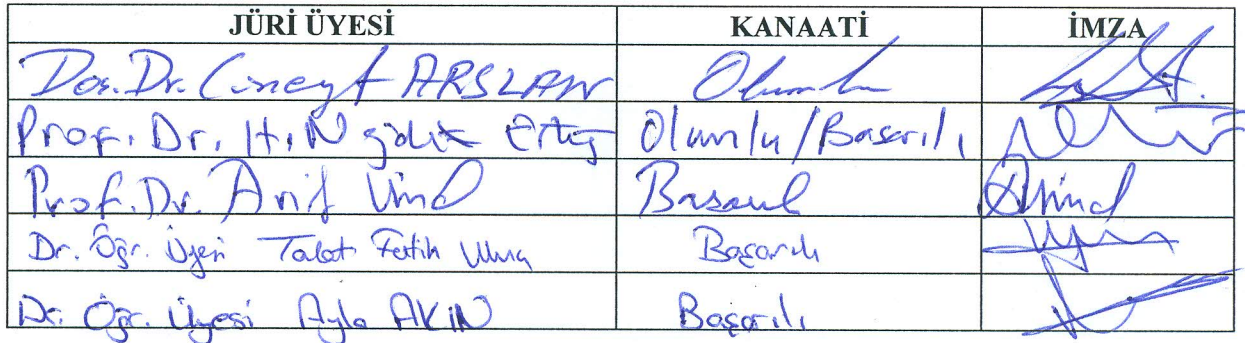 JÜRİ ÜYESİ KANAATİ İMZA
Doç. Dr. Cüneyt ARSLAN Olumlu
Prof. Dr. H. N Olumlu / Başarılı
Prof. Dr. Arif Ünal Başarılı
Dr. Öğr. Üyesi Talat Fatih Başarılı
Dr. Öğr. Üyesi Ayla AKIN Başarılı